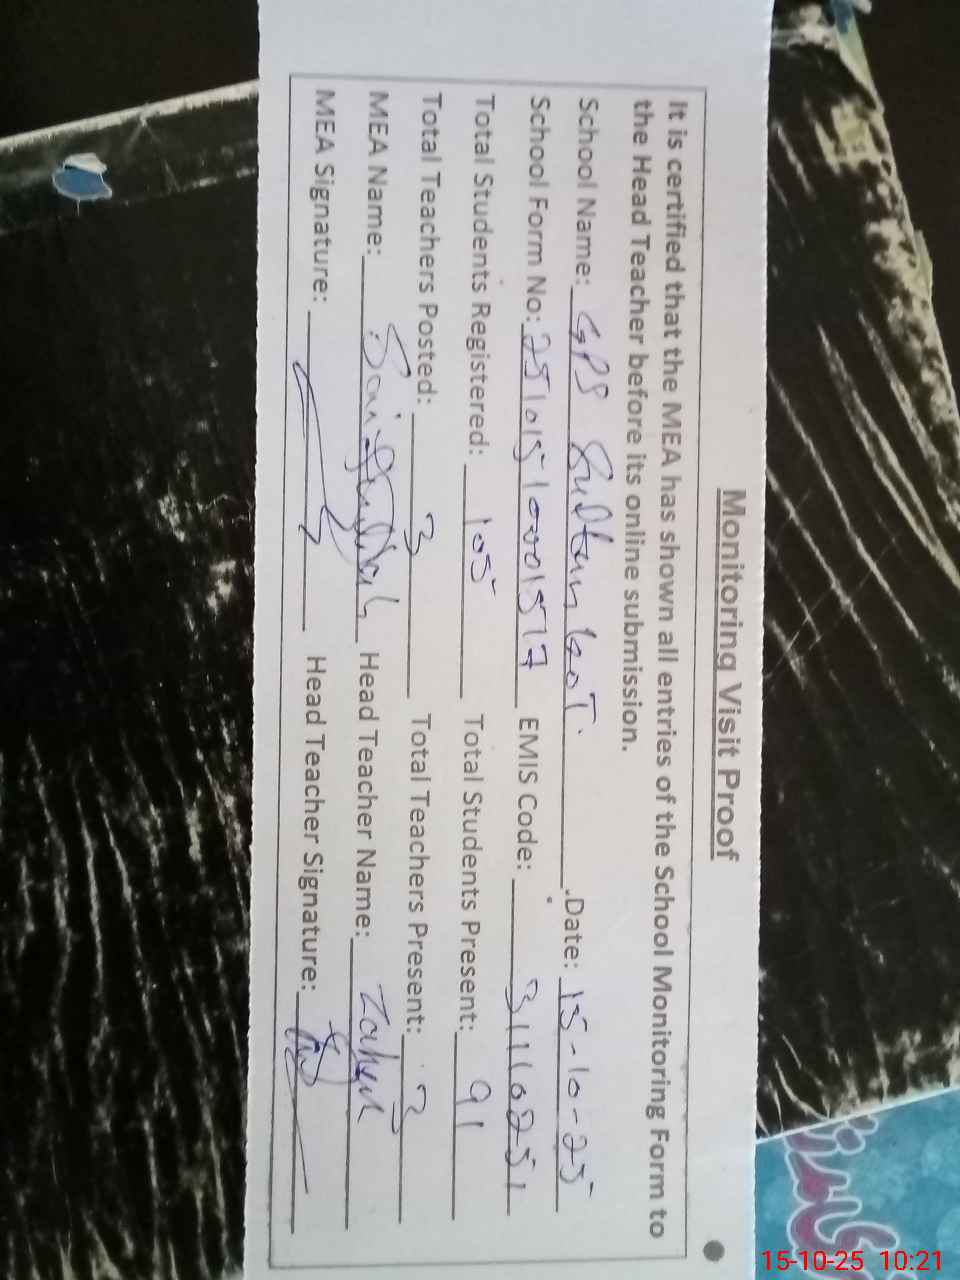 Monitoring Visit Proof
It is certified that the MEA has shown all entries of the School Monitoring Form to
the Head Teacher before its online submission.
School Name: GPS Sultan koT. Date: 15-10-25
School Form No: EMIS Code: 31110251
Total Students Registered: 105 Total Students Present: 91
Total Teachers Posted: 3 Total Teachers Present: 3
MEA Name: Head Teacher Name:
MEA Signature: Head Teacher Signature:
15-10-25 10:21